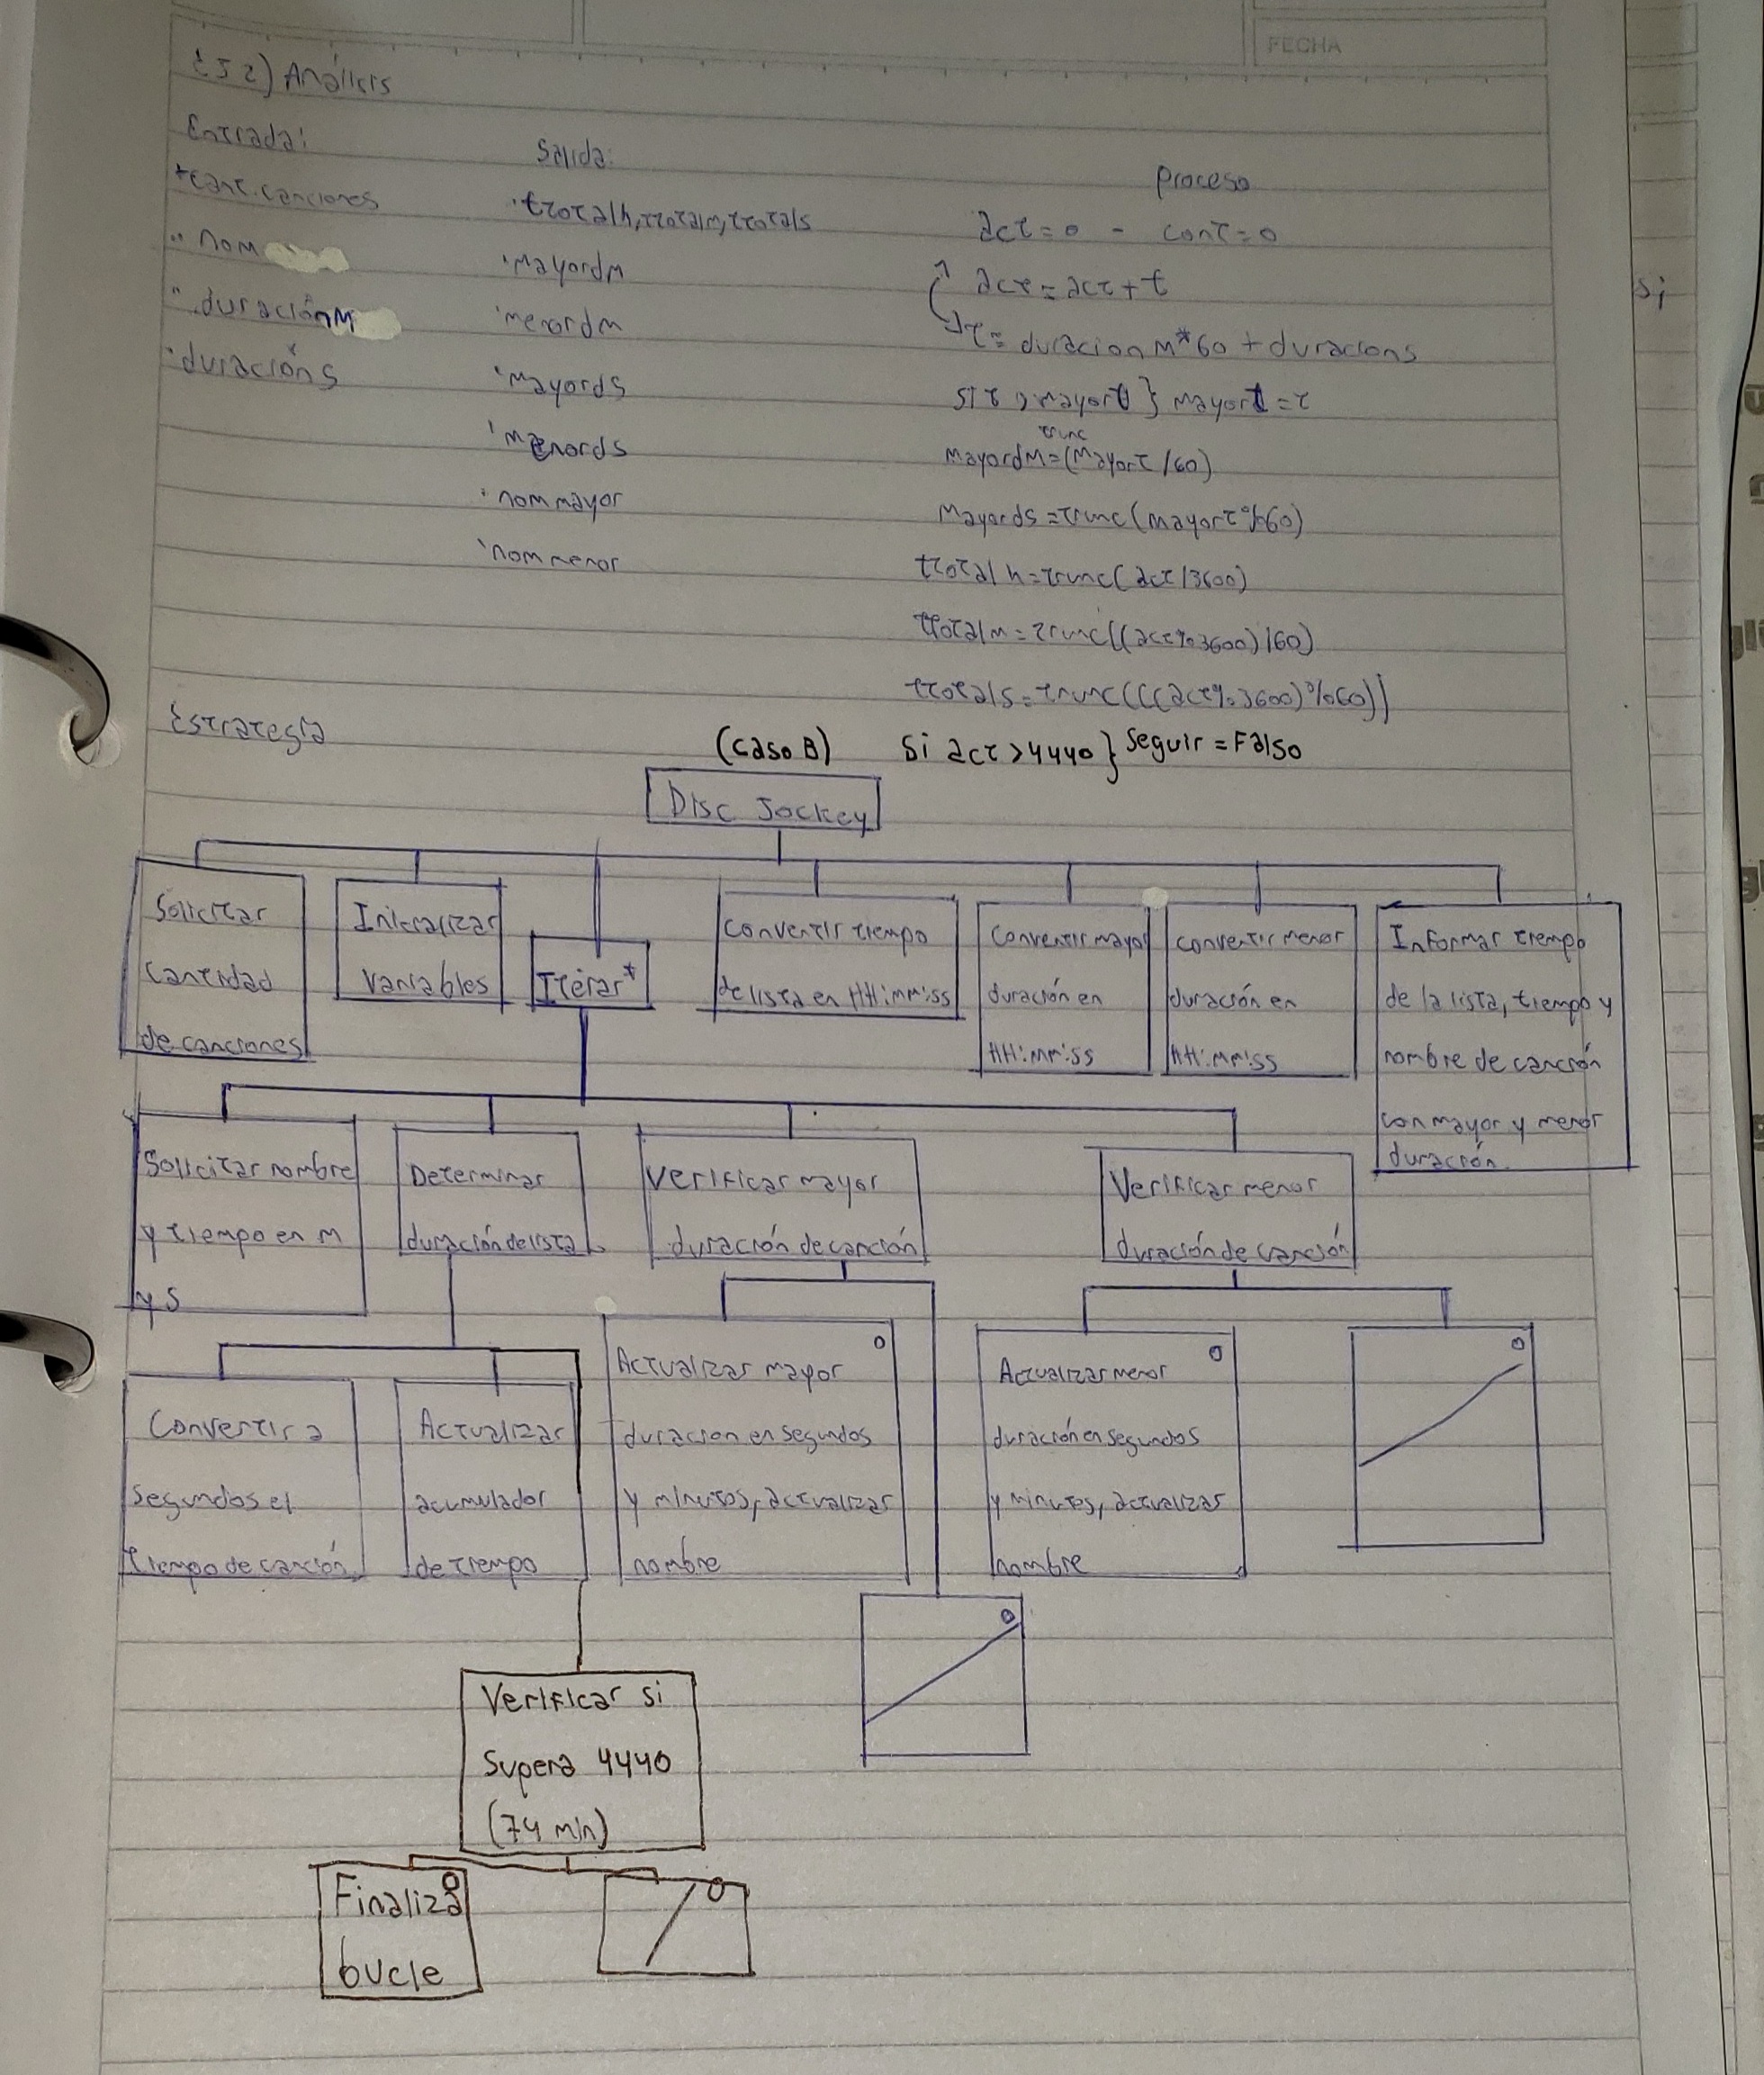 FECHA
EJ 2) Análisis
Entrada:
Salida:
Proceso
*cant.canciones
" nom
" duraciónM
·duración s
·ttotalh, ttotalm, ttotals
'mayordm
'menordm
'mayords
'menords
'nommayor
'nommenor
act=0 - cont=0
act=act+t
t= duracionM*60+duracions
si t > mayort } mayort=t
trunc
mayordM=(mayort/60)
Mayords=trunc(mayort%60)
ttotalh=trunc(act/3600)
ttotalm=trunc((act%3600)/60)
ttotals=trunc(((act%3600)%60))
Si
Estrategia
(caso B) Si act>4440} Seguir=Falso
Disc Jockey
Solicitar
cantidad
de canciones
Inicializar
variables
Iterar*
Convertir tiempo
de lista en HH:mm:ss
Convertir mayor
duración en
HH:mm:ss
convertir menor
duración en
HH:mm:ss
Informar tiempo
de la lista, tiempo y
nombre de canción
con mayor y menor
duración.
Solicitar nombre
y tiempo en m
y s
Determinar
duración de lista
Verificar mayor
duración de canción
Verificar menor
duración de canción
Convertir a
segundos el
tiempo de canción
Actualizar
acumulador
de tiempo
Actualizar mayor
duracion en segundos
y minutos, actualizar
nombre
Actualizar menor
duración en segundos
y minutos, actualizar
nombre
Verificar si
Supera 4440
(74 min)
Finaliza
bucle